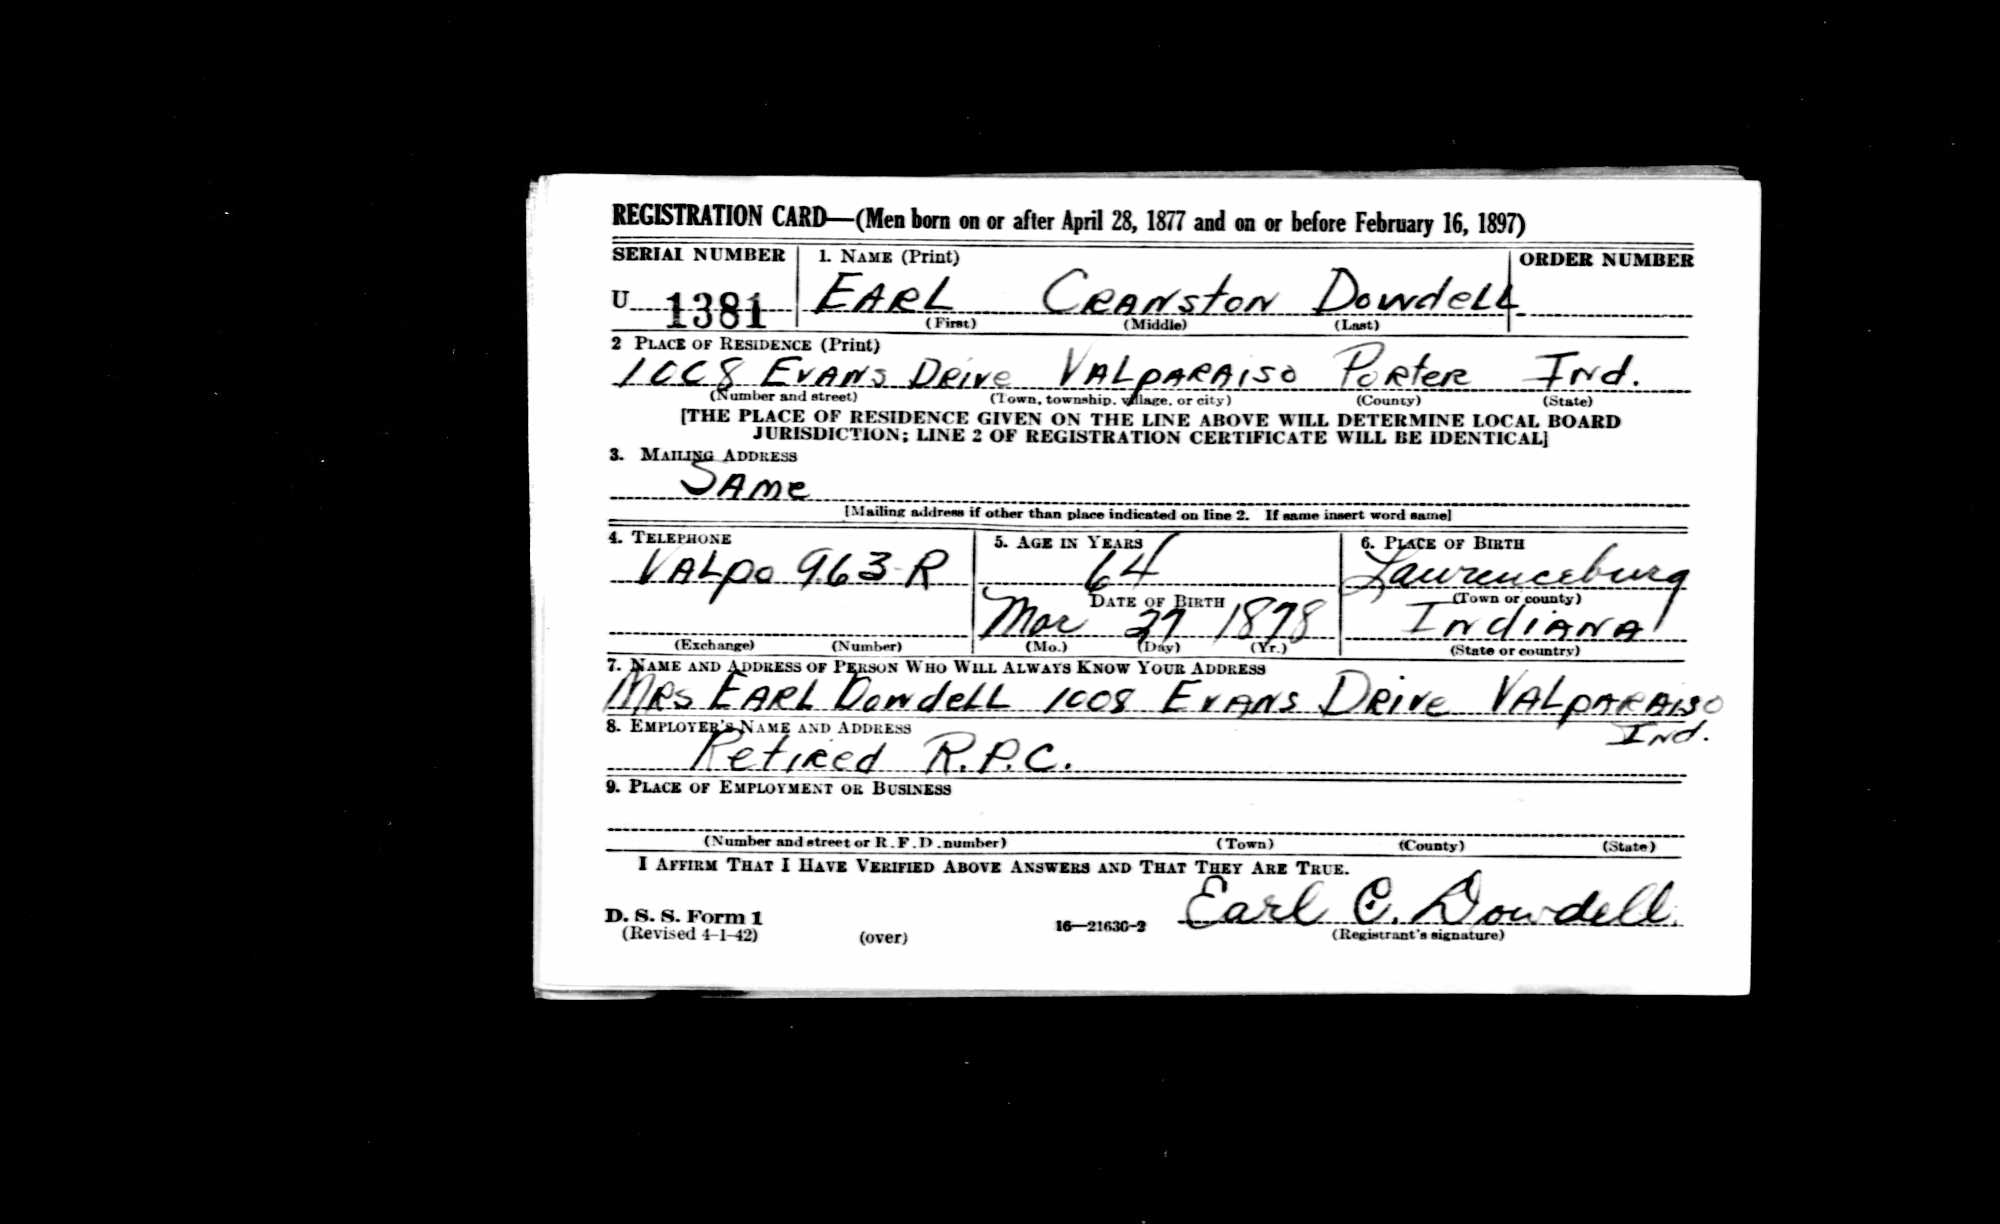 REGISTRATION CARD—(Men born on or after April 28, 1877 and on or before February 16, 1897)
SERIAL NUMBER 1. NAME (Print) ORDER NUMBER
U 1381 EARL CRANSTON DOWDELL
(First) (Middle) (Last)
2 PLACE OF RESIDENCE (Print)
1008 EVANS DRIVE VALPARAISO PORTER IND.
(Number and street) (Town, township, village, or city) (County) (State)
[THE PLACE OF RESIDENCE GIVEN ON THE LINE ABOVE WILL DETERMINE LOCAL BOARD
JURISDICTION; LINE 2 OF REGISTRATION CERTIFICATE WILL BE IDENTICAL]
3. MAILING ADDRESS
SAME
[Mailing address if other than place indicated on line 2. If same insert word same]
4. TELEPHONE 5. AGE IN YEARS 6. PLACE OF BIRTH
VALPO 963-R 64 Lawrenceburg
DATE OF BIRTH (Town or county)
Mar 27 1878 INDIANA
(Exchange) (Number) (Mo.) (Day) (Yr.) (State or country)
7. NAME AND ADDRESS OF PERSON WHO WILL ALWAYS KNOW YOUR ADDRESS
MRS EARL DOWDELL 1008 EVANS DRIVE VALPARAISO
IND.
8. EMPLOYER'S NAME AND ADDRESS
Retired R.P.C.
9. PLACE OF EMPLOYMENT OR BUSINESS
(Number and street or R.F.D. number) (Town) (County) (State)
I AFFIRM THAT I HAVE VERIFIED ABOVE ANSWERS AND THAT THEY ARE TRUE.
Earl C. Dowdell
D. S. S. Form 1
(Revised 4-1-42) (over) 16—21630-2 (Registrant's signature)